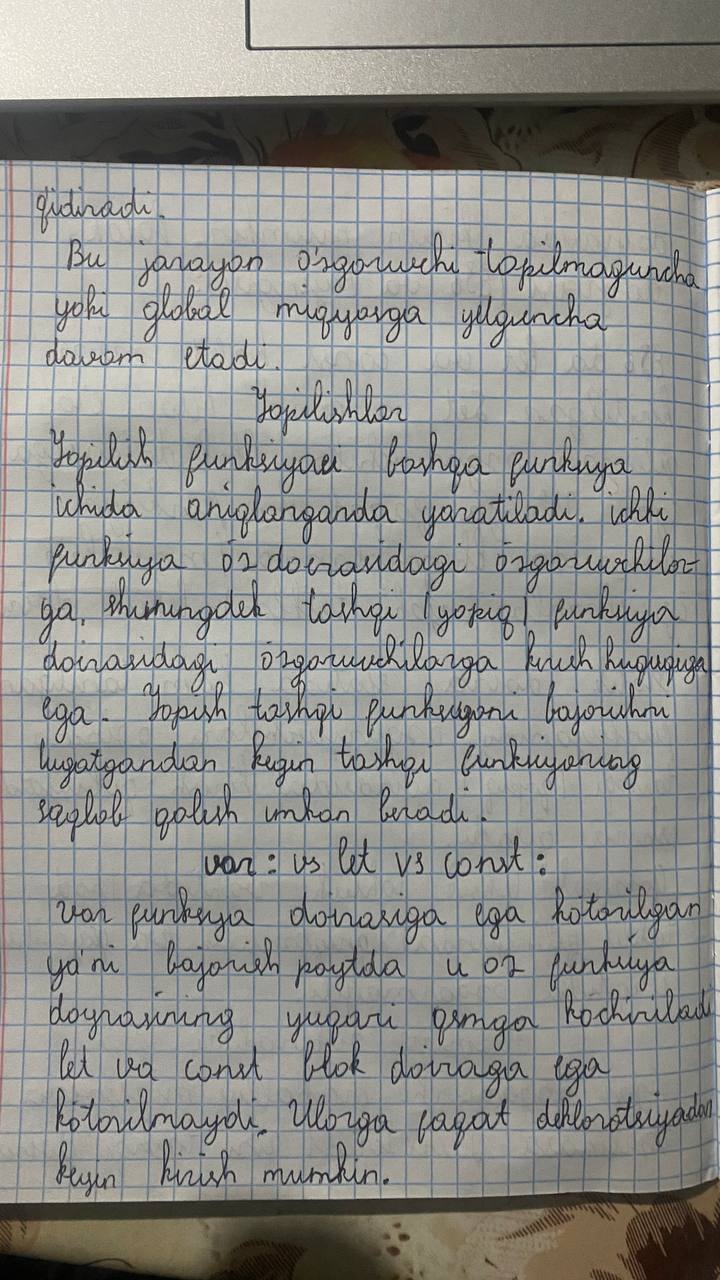 qidiradi.
Bu jarayon o'zgoruvchi topilmaguncha
yoki global miqyosga yelguncha
davom etadi.
Yopilishlar
Yopilish funksiyasi boshqa funksiya
ichida aniqlanganda yaratiladi. ichki
funksiya óz doirasidagi ózgoruvchilor-
ga, shuningdek tashqi (yopiq) funksiya
doirasidagi ózgoruvchilarga kirish huquqiga
ega. Yopish tashqi funksiyani bajorishni
tugatgandan keyin tashqi funksiyoning
saqlab qolish imkon beradi.
var: vs let vs const:
var funksiya doirasiga ega kótorilgan
ya'ni bajorish paytda u oz funksiya
doyrasining yuqari qsmga kóchiriladi
let va const blok doiraga ega
kótorilmaydi. Ulorga faqat deklorotsiyadan
keyin kirish mumkin.